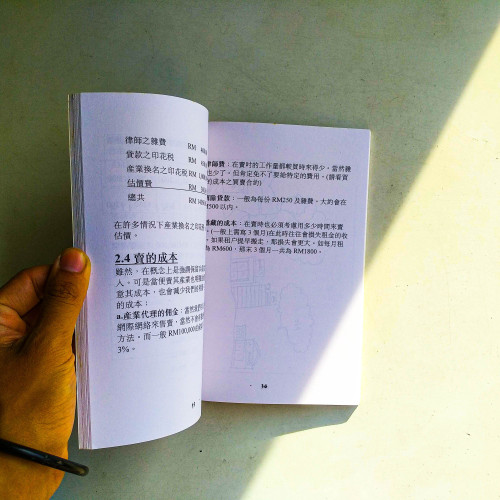 律師之雜費 RM
貸款之印花税 RM
產業換名之印花税 RM
估價費 RM
總共 RM
在許多情況下產業換名之印花
估價。
2.4 賣的成本
雖然，在概念上是強調保留
人。可是當便賣其產業也
意其成本，也會減少我們
的成本：
a.產業代理的佣金：當然我們
網際網絡來售賣，當然不
方法，而一般 RM100,000
3%。
律師費：在賣時的工作量都較買時來得少，當然雜
也少了。但肯定免不了要給特定的費用。(請看買
的成本之買賣合約)
除貸款：一般為每份 RM250 及雜費，大約會在
500 以內。
藏的成本：在賣時也必須考慮用多少時間來賣
(一般上需寫 3 個月)在此時往往會損失租金的收
。如果租戶提早搬走，那損失會更大。如每月租
RM600，經末 3 個月一共為 RM1800。
36